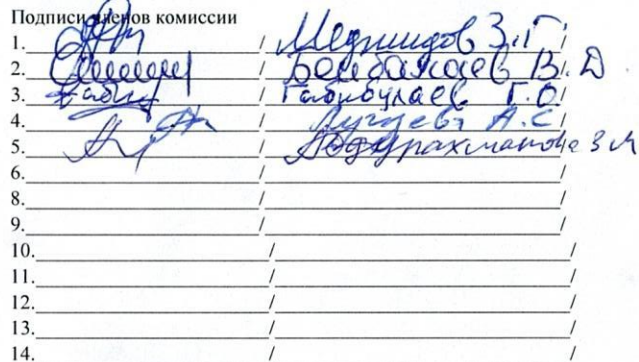 Подписи членов комиссии
1. / Меджидов З.Г. /
2. / В.Д
3. / Габибулаев Г.О
4. / А.С
5. / Абдурахманова З М
6. / /
8. / /
9. / /
10. / /
11. / /
12. / /
13. / /
14. / /